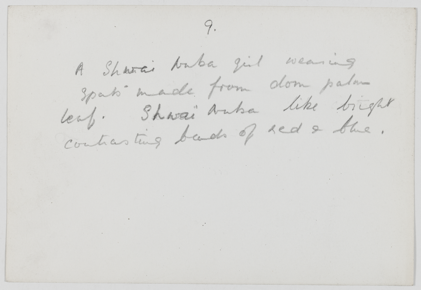 9.
A Shwai Nuba girl wearing
"spats" made from dom palm
leaf. Shwai Nuba like bright
contrasting bands of red & blue.